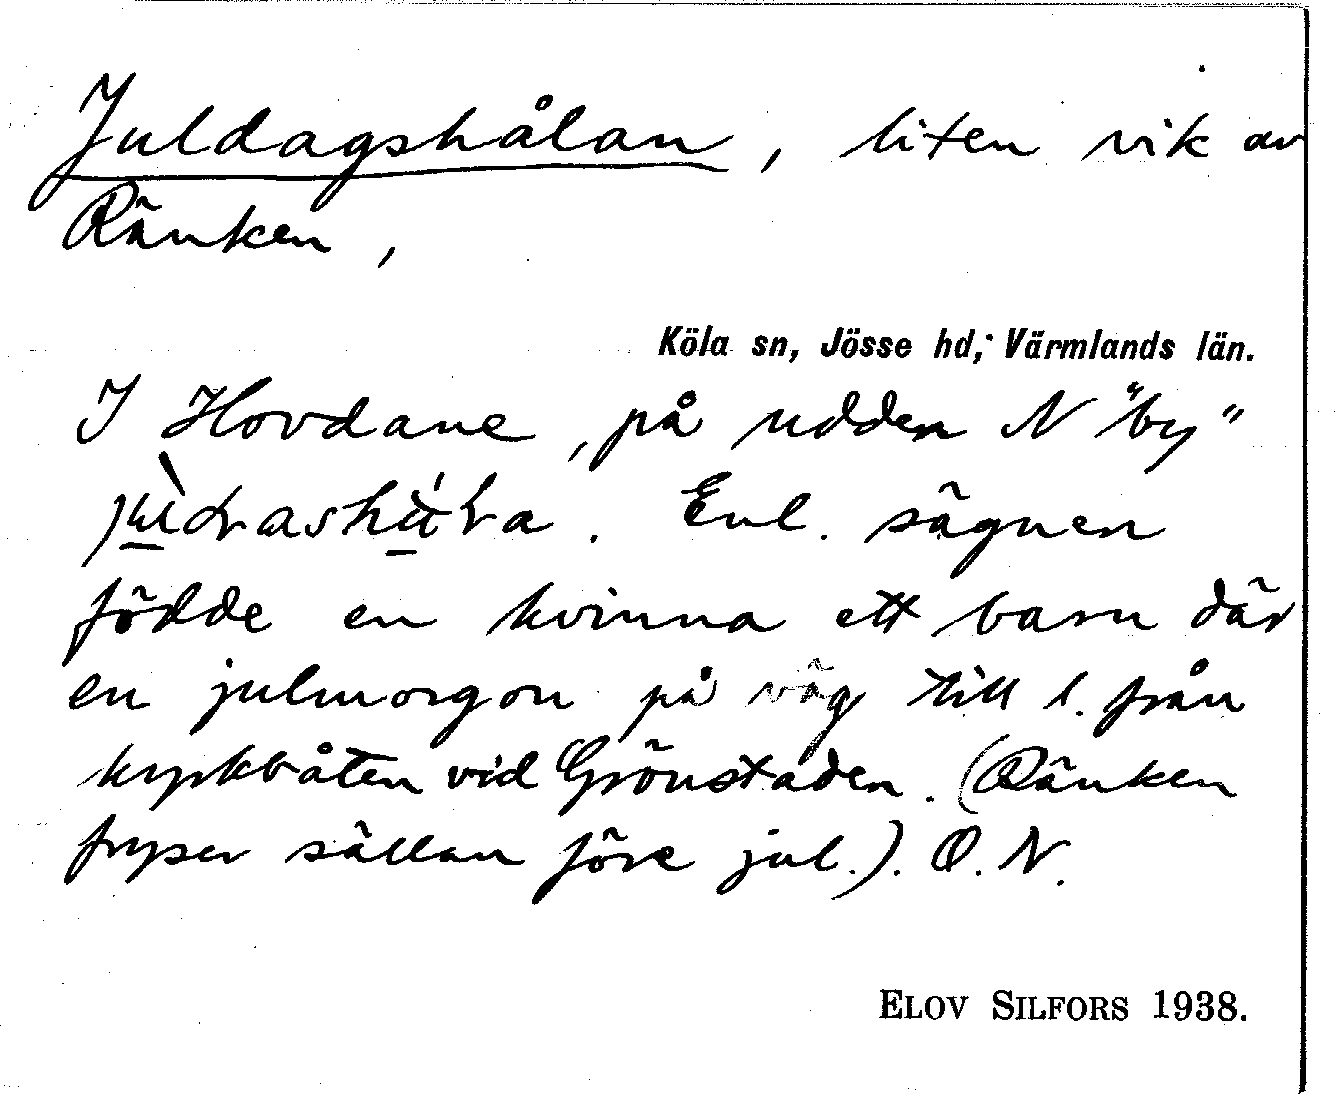 Juldagshålan, liten vik av
Ränken,
Köla sn, Jösse hd, Värmlands län.
I Hovdane, på udden N "by"
. Enl. sägnen
födde en kvinna ett barn där
en julmorgon på väg till l. från
kyrkbåten vid Grönstaden. (Ränken
fryser sällan före jul.). O. N.
ELOV SILFORS 1938.